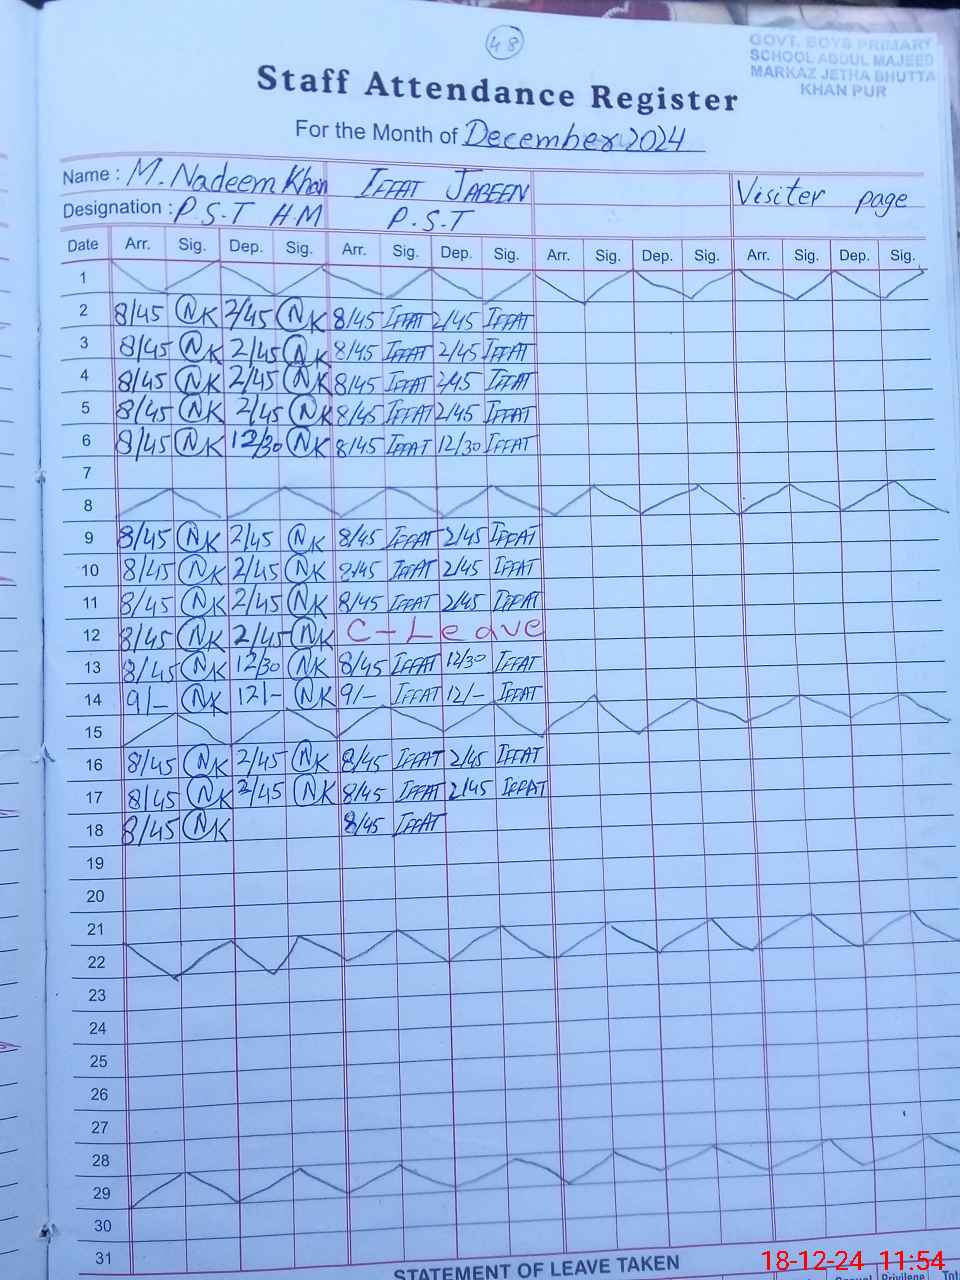 48
GOVT. BOYS PRIMARY
SCHOOL ABDUL MAJEED
MARKAZ JETHA BHUTTA
KHAN PUR
Staff Attendance Register
For the Month of December 2024
Name : M. Nadeem Khan IFFAT JABEEN Visiter page
Designation : P.S.T HM P.S.T
Date Arr. Sig. Dep. Sig. Arr. Sig. Dep. Sig. Arr. Sig. Dep. Sig. Arr. Sig. Dep. Sig.
1
2 8/45 NK 2/45 NK 8/45 IFFAT 2/45 IFFAT
3 8/45 NK 2/45 NK 8/45 IFFAT 2/45 IFFAT
4 8/45 NK 2/45 NK 8/45 IFFAT 2/45 IFFAT
5 8/45 NK 2/45 NK 8/45 IFFAT 2/45 IFFAT
6 8/45 NK 12/30 NK 8/45 IFFAT 12/30 IFFAT
7
8
9 8/45 NK 2/45 NK 8/45 IFFAT 2/45 IFFAT
10 8/45 NK 2/45 NK 8/45 IFFAT 2/45 IFFAT
11 8/45 NK 2/45 NK 8/45 IFFAT 2/45 IFFAT
12 8/45 NK 2/45 NK C-Leave
13 8/45 NK 12/30 NK 8/45 IFFAT 12/30 IFFAT
14 9/- NK 12/- NK 9/- IFFAT 12/- IFFAT
15
16 8/45 NK 2/45 NK 8/45 IFFAT 2/45 IFFAT
17 8/45 NK 2/45 NK 8/45 IFFAT 2/45 IFFAT
18 8/45 NK 8/45 IFFAT
19
20
21
22
23
24
25
26
27
28
29
30
31
STATEMENT OF LEAVE TAKEN
18-12-24 11:54